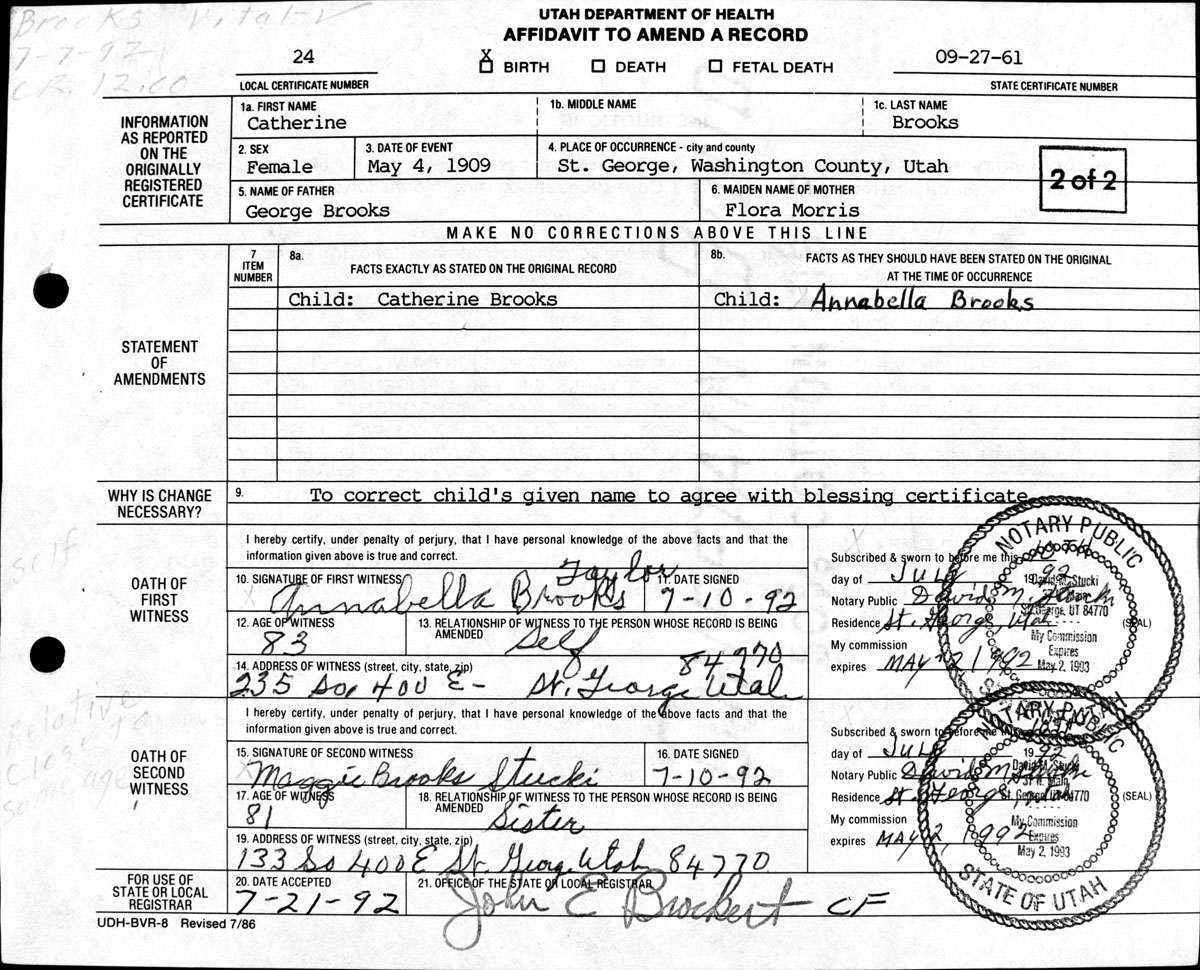 Brooks Vital-
7-7-92
CR. 12.00
UTAH DEPARTMENT OF HEALTH
AFFIDAVIT TO AMEND A RECORD
24
LOCAL CERTIFICATE NUMBER
X BIRTH DEATH FETAL DEATH
09-27-61
STATE CERTIFICATE NUMBER
INFORMATION AS REPORTED ON THE ORIGINALLY REGISTERED CERTIFICATE
1a. FIRST NAME 1b. MIDDLE NAME 1c. LAST NAME
Catherine Brooks
2. SEX 3. DATE OF EVENT 4. PLACE OF OCCURRENCE - city and county
Female May 4, 1909 St. George, Washington County, Utah
2 of 2
5. NAME OF FATHER 6. MAIDEN NAME OF MOTHER
George Brooks Flora Morris
MAKE NO CORRECTIONS ABOVE THIS LINE
STATEMENT OF AMENDMENTS
7 ITEM NUMBER
8a. FACTS EXACTLY AS STATED ON THE ORIGINAL RECORD
8b. FACTS AS THEY SHOULD HAVE BEEN STATED ON THE ORIGINAL
AT THE TIME OF OCCURRENCE
Child: Catherine Brooks Child: Annabella Brooks
WHY IS CHANGE NECESSARY?
9. To correct child's given name to agree with blessing certificate
self
OATH OF FIRST WITNESS
I hereby certify, under penalty of perjury, that I have personal knowledge of the above facts and that the
information given above is true and correct.
10. SIGNATURE OF FIRST WITNESS 11. DATE SIGNED
Annabella Brooks Taylor 7-10-92
12. AGE OF WITNESS 13. RELATIONSHIP OF WITNESS TO THE PERSON WHOSE RECORD IS BEING AMENDED
83 Self
14. ADDRESS OF WITNESS (street, city, state, zip)
235 So, 400 E - St. George Utah 84770
Subscribed & sworn to before me this
day of July 19 92
Notary Public David M. Stucki
Residence St. George, Utah (SEAL)
My commission
expires MAY 2 1992
NOTARY PUBLIC
David M. Stucki
St. George, UT 84770
My Commission
Expires
May 2, 1993
STATE OF UTAH
Relative
close to
same age
OATH OF SECOND WITNESS
I hereby certify, under penalty of perjury, that I have personal knowledge of the above facts and that the
information given above is true and correct.
15. SIGNATURE OF SECOND WITNESS 16. DATE SIGNED
Maggie Brooks Stucki 7-10-92
17. AGE OF WITNESS 18. RELATIONSHIP OF WITNESS TO THE PERSON WHOSE RECORD IS BEING AMENDED
81 Sister
19. ADDRESS OF WITNESS (street, city, state, zip)
133 So 400 E St. Georg. Utah 84770
Subscribed & sworn to before me this
day of July 19 92
Notary Public David M Stucki
Residence St. George, (SEAL)
My commission
expires MAY 2, 1992
NOTARY PUBLIC
David M. Stucki
37 N. Main
St. George, UT 84770
My Commission
Expires
May 2, 1993
STATE OF UTAH
FOR USE OF STATE OR LOCAL REGISTRAR
20. DATE ACCEPTED 21. OFFICE OF THE STATE OR LOCAL REGISTRAR
7-21-92 John E Brockert CF
UDH-BVR-8 Revised 7/86